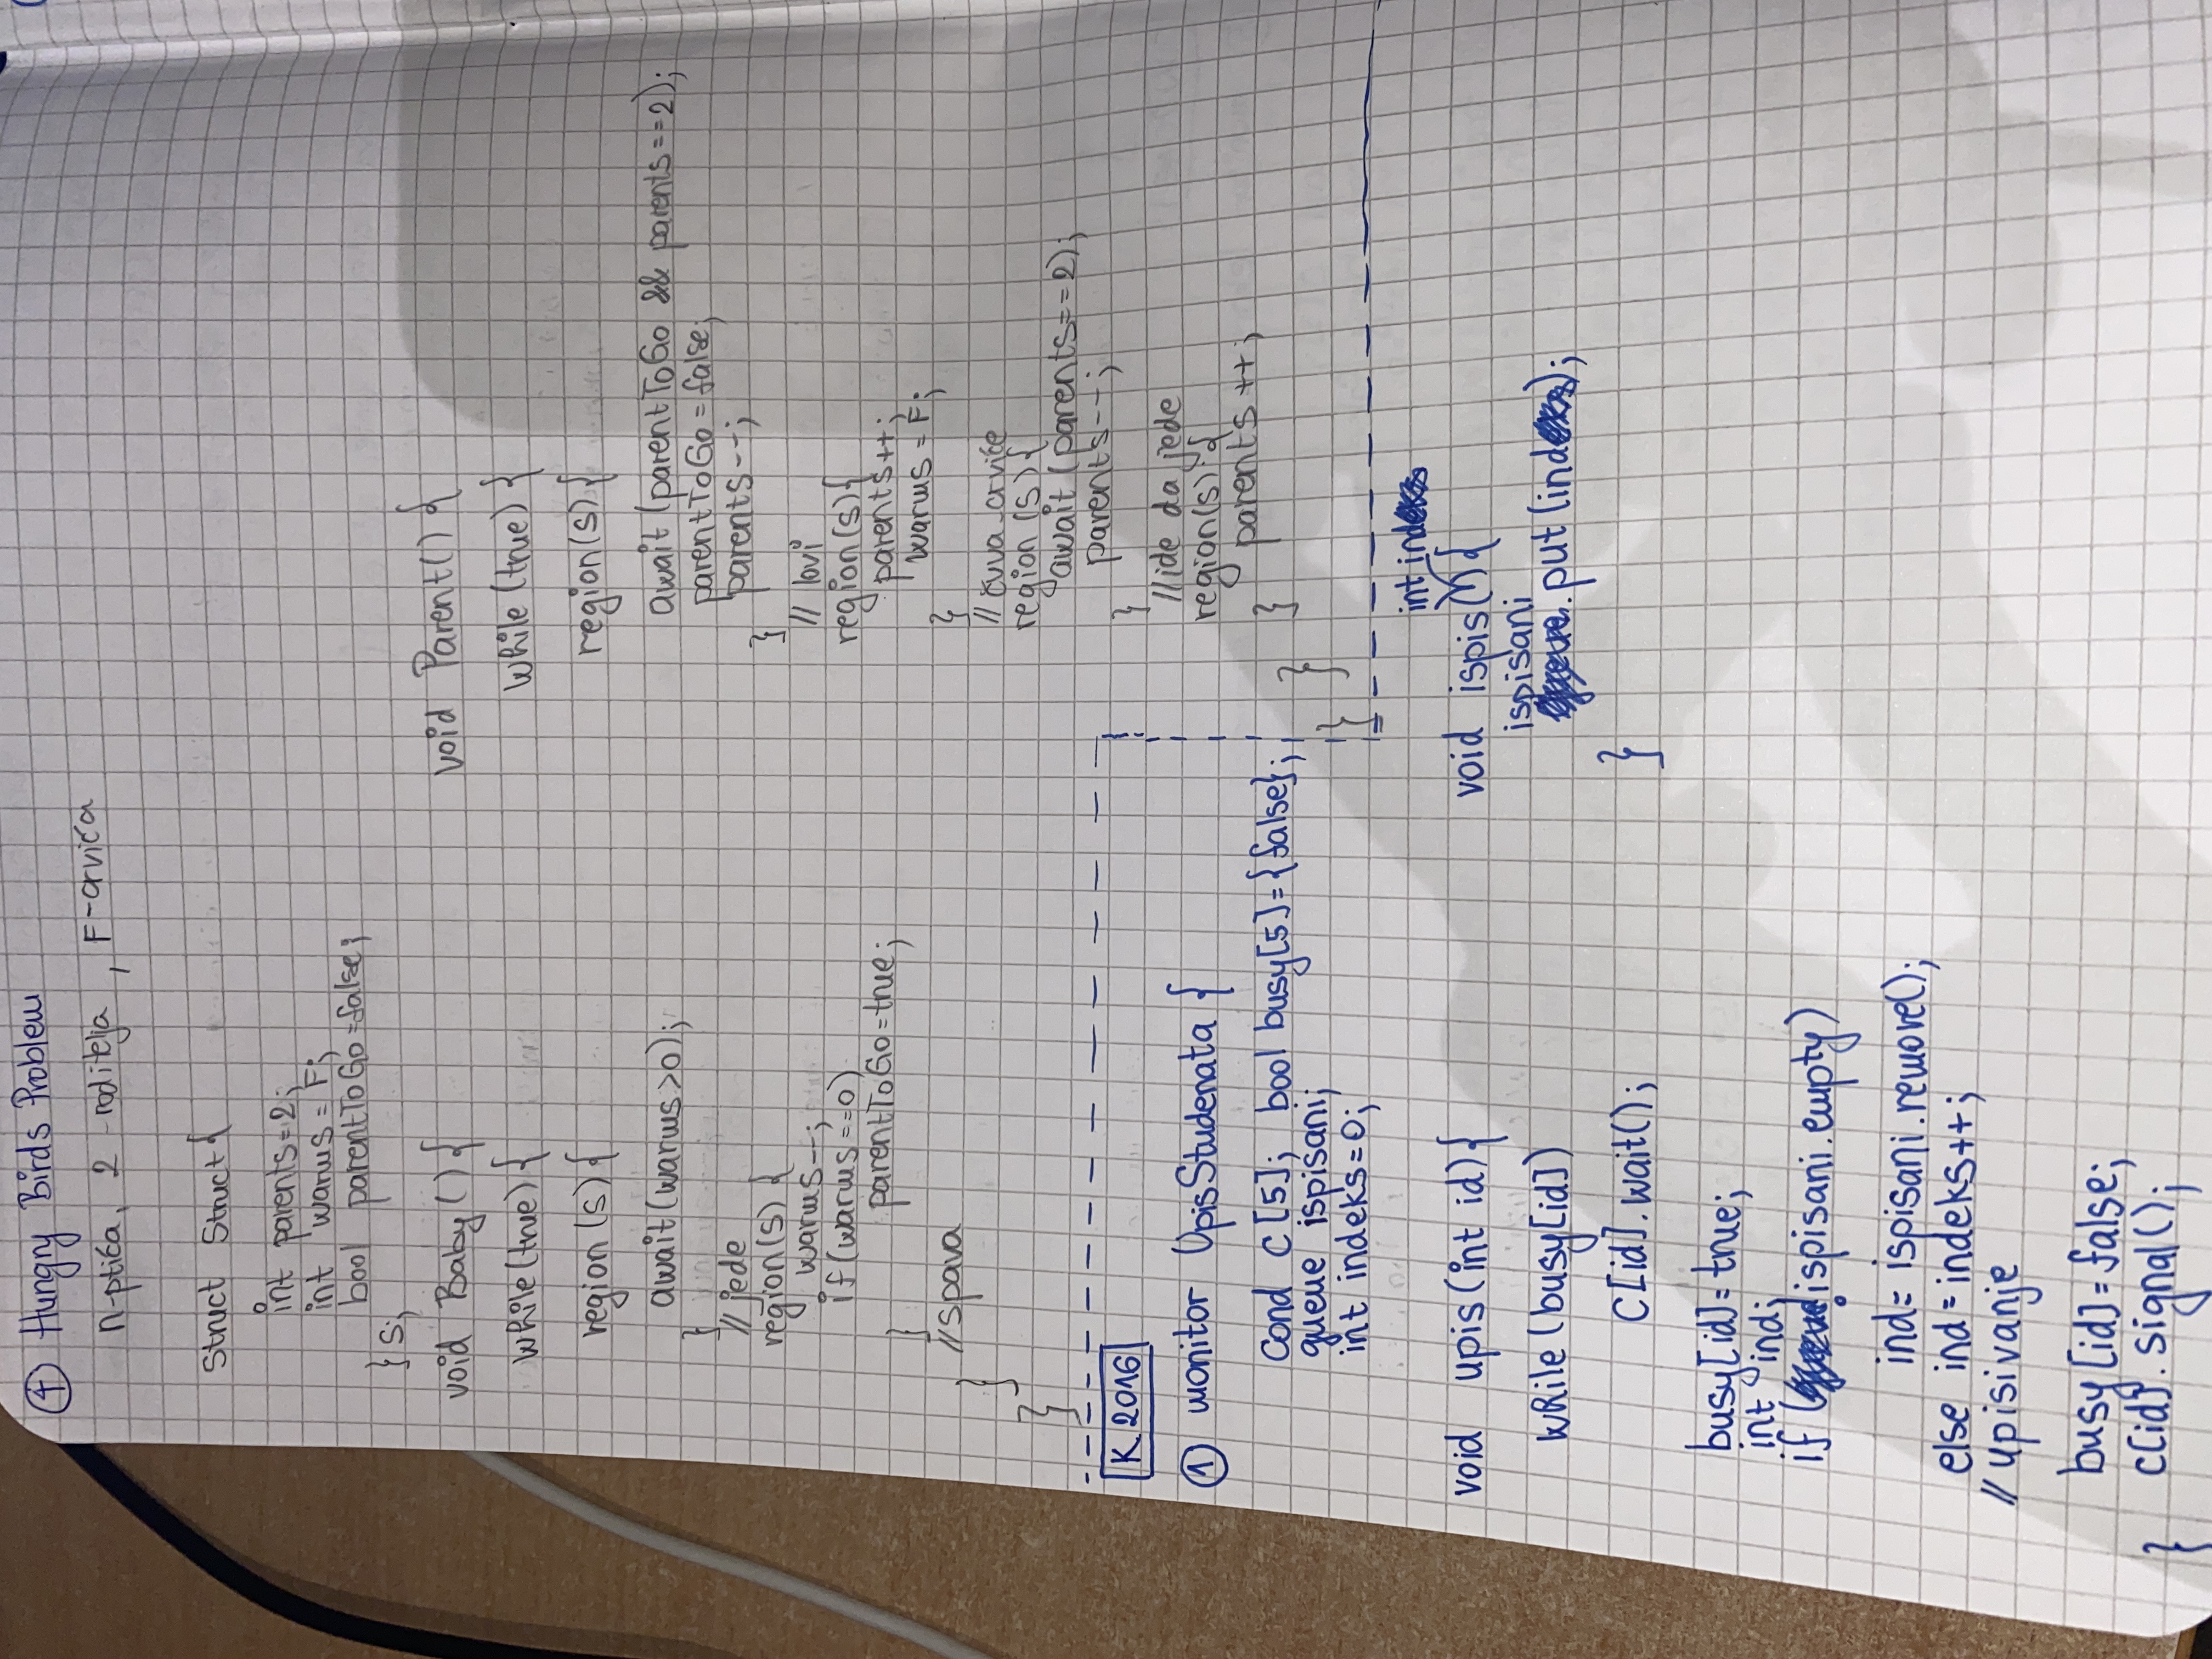 ④ Hungry Birds Problem
n-ptića, 2 roditelja, F-crvića
struct Struct{
int parents=2;
int warms = F;
bool parentToGo=false;
} s;
void Baby(){
while(true){
region(s){
await(warms>0);
}
//jede
region(s){
warms--;
if(warms==0)
parentToGo=true;
}
//spava
}
}
void Parent(){
while(true){
region(s){
await(parentToGo && parents==2);
parentToGo=false;
parents--;
}
// lovi
region(s){
parents++;
warms = F;
}
// čuva crviće
region(s){
await(parents==2);
parents--;
}
//ide da jede
region(s){
parents++;
}
}
}
K 2016
① monitor UpisStudenata {
cond c[5]; bool busy[5]={false};
queue ispisani;
int indeks=0;
void upis(int id){
while(busy[id])
c[id].wait();
busy[id]=true;
int ind;
if (!ispisani.empty)
ind= ispisani.remove();
else ind=indeks++;
//upisivanje
busy[id]=false;
c[id].signal();
}
int ind
void ispis(){
ispisani
.put(ind);
}